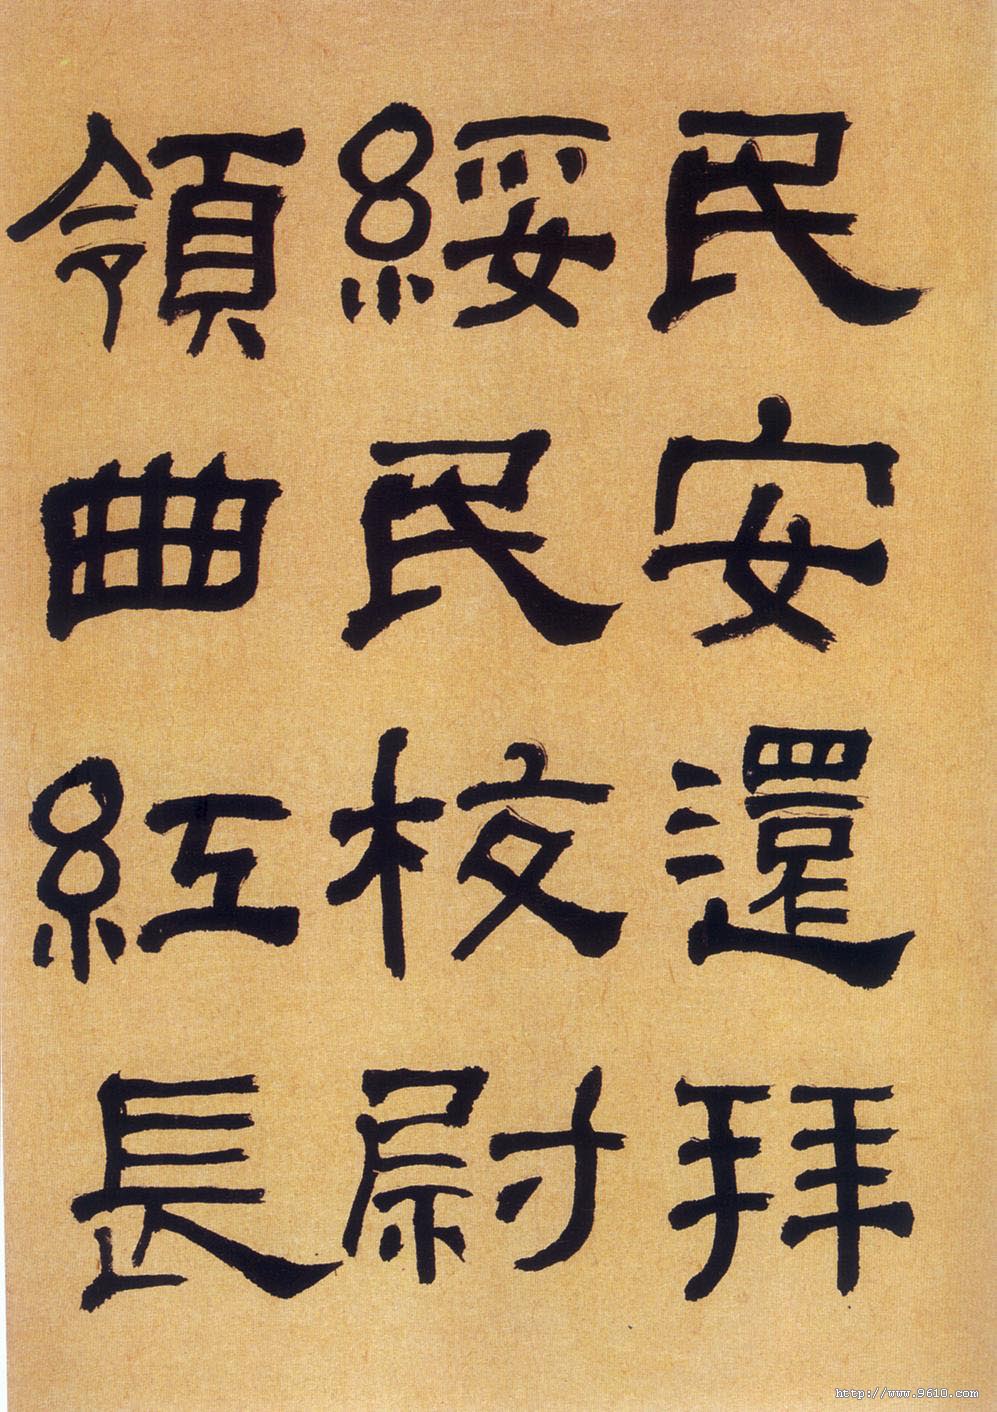 民安還拜
綏民校尉
領曲紅長
http://www.9610.com